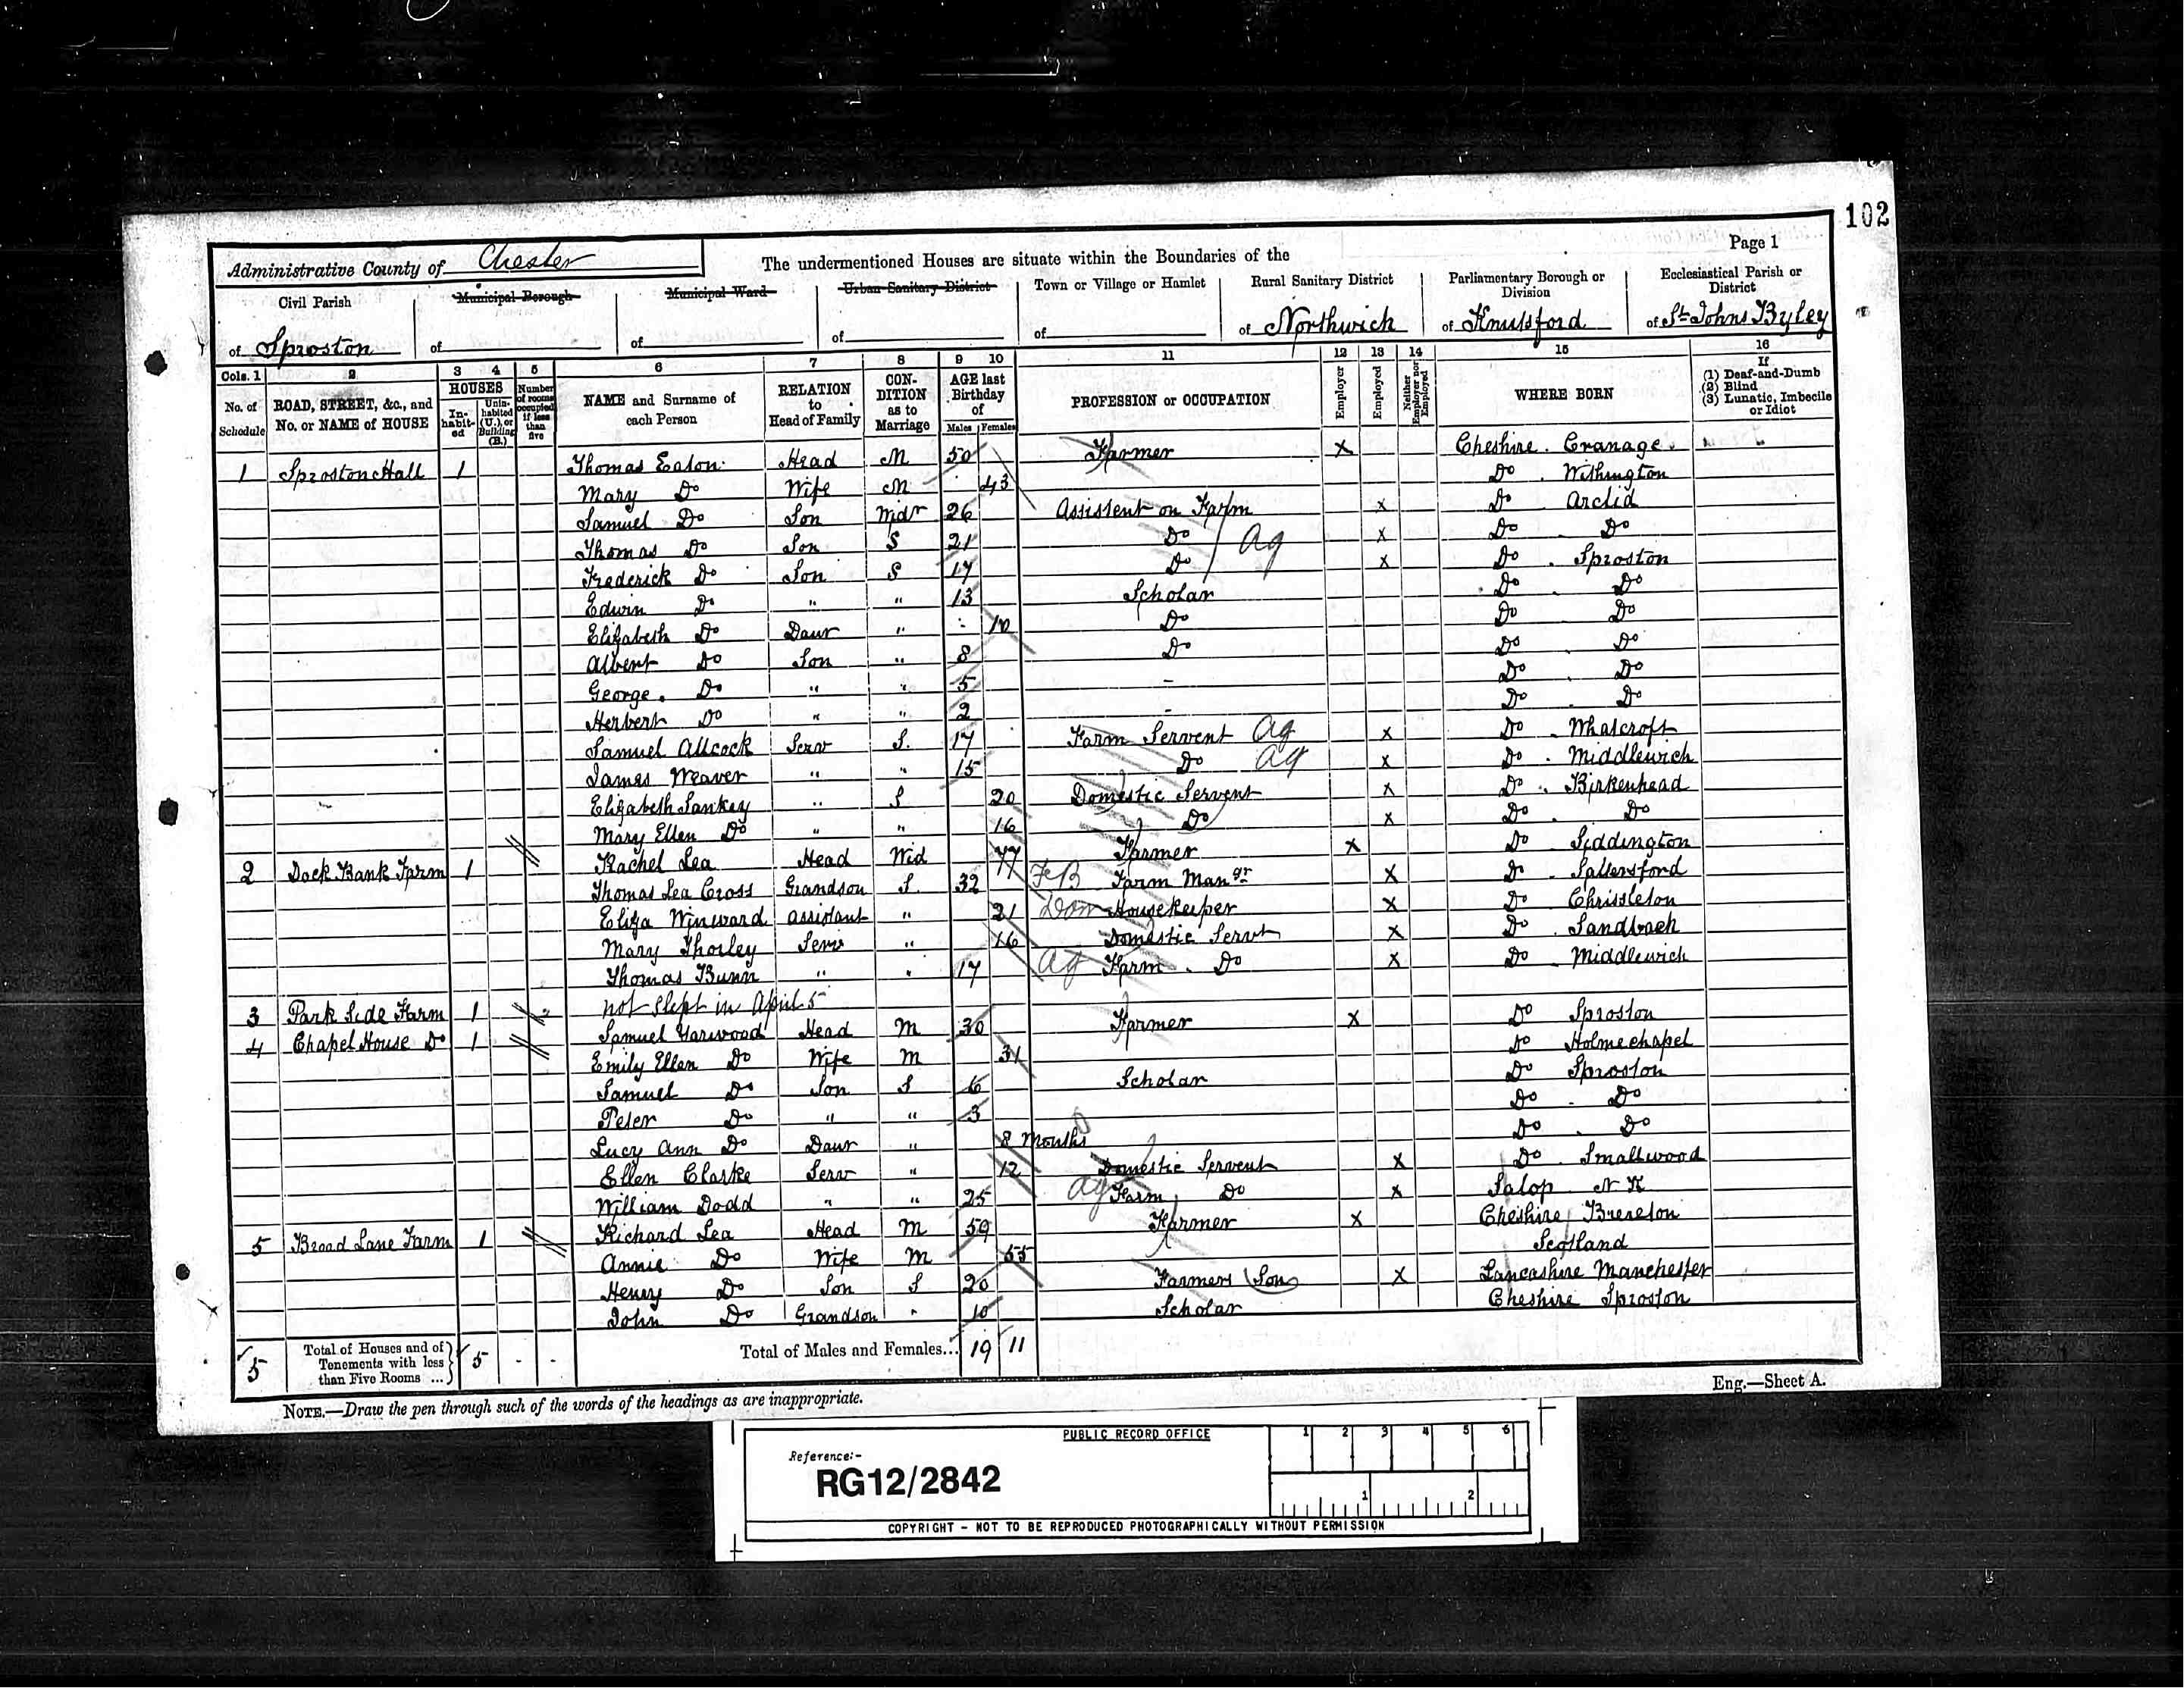 102
Page 1
Administrative County of Chester
The undermentioned Houses are situate within the Boundaries of the
Civil Parish of Sproston
Municipal Borough of
Municipal Ward of
Urban Sanitary District of
Town or Village or Hamlet of
Rural Sanitary District of Northwich
Parliamentary Borough or Division of Knutsford
Ecclesiastical Parish or District of St Johns Byley
Cols. 1 2 3 4 5 6 7 8 9 10 11 12 13 14 15 16
No. of Schedule
ROAD, STREET, &c., and No. or NAME of HOUSE
HOUSES
In-habit-ed
Unin-habited (U.), or Building (B.)
Number of rooms occupied if less than five
NAME and Surname of each Person
RELATION to Head of Family
CON-DITION as to Marriage
AGE last Birthday of
Males Females
PROFESSION or OCCUPATION
Employer
Employed
Neither Employer nor Employed
WHERE BORN
If (1) Deaf-and-Dumb (2) Blind (3) Lunatic, Imbecile or Idiot
1 Sproston Hall 1 Thomas Eaton Head M 50 Farmer X Cheshire . Cranage
Mary Do Wife M 43 Do . Withington
Samuel Do Son Wdr 26 Assistent on Farm X Do Arclid
Thomas Do Son S 21 Do Ag X Do . Do
Frederick Do Son S 17 Do X Do . Sproston
Edwin Do " " 13 Scholar Do Do
Elizabeth Do Daur " 10 Do Do Do
Albert Do Son " 8 Do Do Do
George . Do " " 5 - Do Do
Herbert Do " " 2 - Do . Do
Samuel Allcock Serv S. 17 Farm Servent Ag X Do . Whatcroft
James Weaver " " 15 Do Ag X Do . Middlewich
Elizabeth Sankey " S 20 Domestic Servent X Do . Birkenhead
Mary Ellen Do " " 16 Do X Do . Do
2 Dock Bank Farm 1 Rachel Lea Head Wid 77 Farmer X Do Siddington
Thomas Lea Cross Grandson S. 32 FB Farm Mangr X Do . Saltersford
Eliza Winward assistant " 21 Dom Housekeeper X Do Christleton
Mary Thorley Serv " 16 Domestic Servt X Do . Sandbach
Thomas Bunn " " 17 Ag Farm . Do X Do . Middlewich
3 Park Side Farm 1 not slept in April 5
4 Chapel House Do 1 Samuel Yarwood Head M 30 Farmer X Do Sproston
Emily Ellen Do Wife M 31 Do Holmechapel
Samuel Do Son S 6 Scholar Do Sproston
Peter Do " " 3 Do . Do
Lucy Ann Do Daur " 8 Months Do . Do
Ellen Clarke Serv " 12 Domestic Servent X Do . Smallwood
William Dodd " " 25 Ag Farm Do X Salop N K
5 Broad Lane Farm 1 Richard Lea Head M 59 Farmer X Cheshire Brereton
Annie Do Wife M 55 Scotland
Henry Do Son S 20 Farmers Son X Lancashire Manchester
John Do Grandson " 10 Scholar Cheshire Sproston
5 Total of Houses and of Tenements with less than Five Rooms ... 5 - - Total of Males and Females... 19 11
NOTE.—Draw the pen through such of the words of the headings as are inappropriate.
Eng.—Sheet A.
PUBLIC RECORD OFFICE
1 2 3 4 5 6
Reference:-
RG12/2842
1 2
COPYRIGHT - NOT TO BE REPRODUCED PHOTOGRAPHICALLY WITHOUT PERMISSION